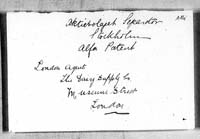 Aktiebolaget Separator
Stockholm
Alfa Patent
London Agent
The Dairy Supply Co
Museum Street
London